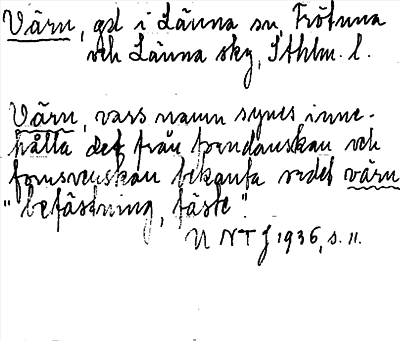 Värn, gd i Länna sn, Frötuna
och Länna skg, Sthlm. l.
Värn, vars namn synes inne-
hålla det från forndanskan och
fornsvenskan bekanta ordet värn
"befästning, fäste".
N NTJ 1936, s. 11.